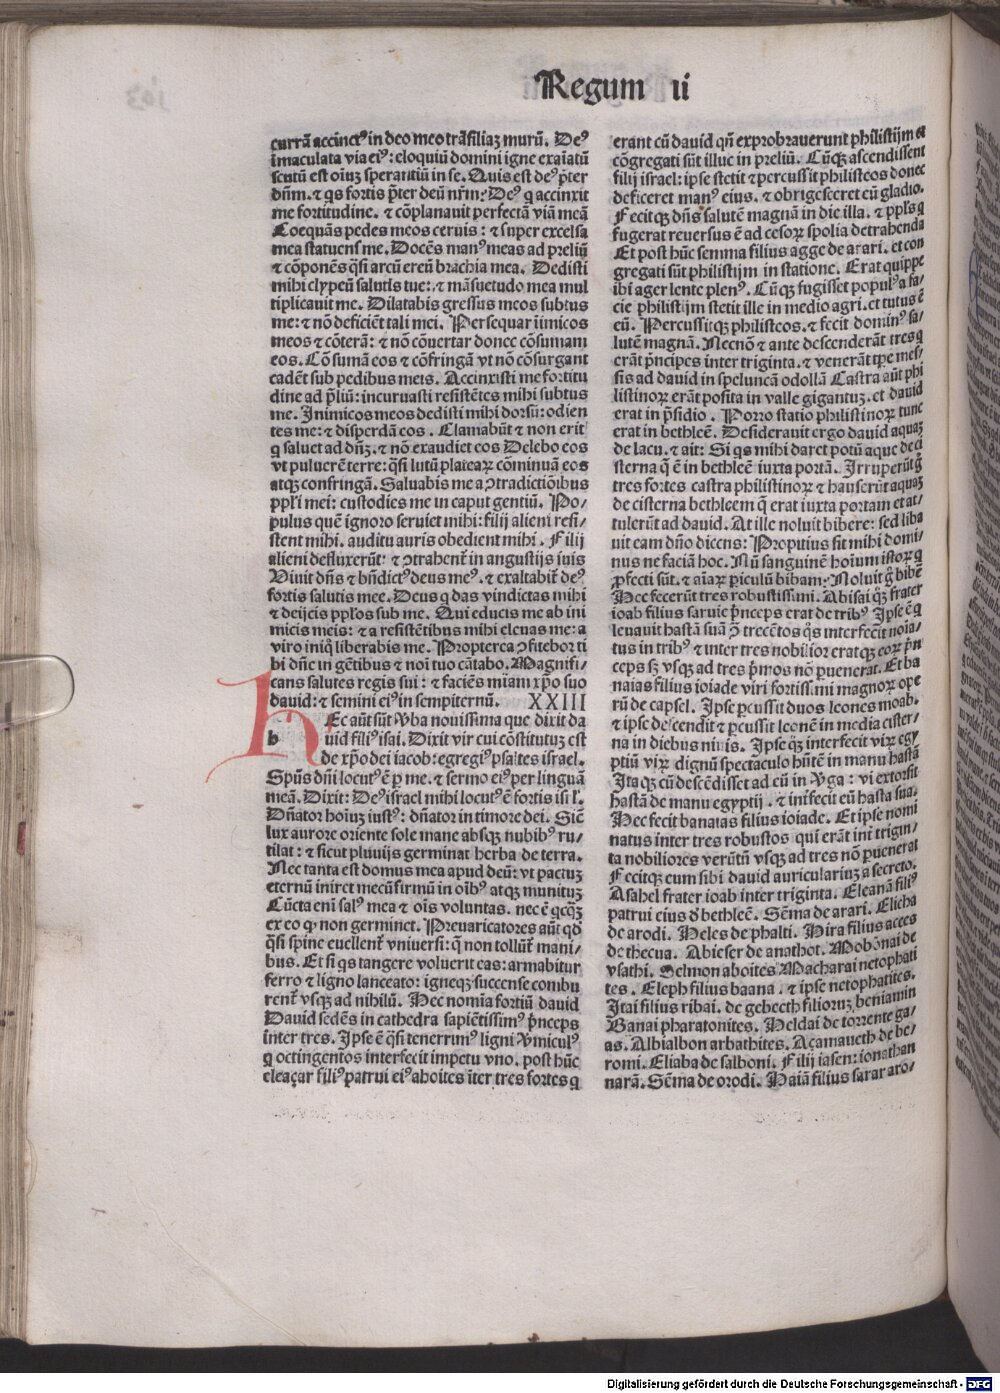 Regum ii
currã accinctꝰ in deo meo trãsiliaʒ murũ. Deꝰ
ĩmaculata via eiꝰ: eloquiũ domini igne exaĩatũ
scutũ est oĩuʒ sperantiũ in se. Quis est deꝰ p̃ter
dñm. ⁊ qs fortis p̃ter deũ nr̃m: Deꝰ q accinxit
me fortitudine. ⁊ cõplanauit perfectã viã meã
Coequãs pedes meos ceruis: ⁊ super excelsa
mea statuens me. Docẽs manꝰ meas ad preliũ
⁊ cõponẽs q̃si arcũ ereũ brachia mea. Dedisti
mihi clypeũ salutis tue: ⁊ mãsuetudo mea mul
tiplicauit me. Dilatabis gressus meos subtus
me: ⁊ nõ deficiẽt tali mei. Persequar iĩmicos
meos ⁊ cõterã: ⁊ nõ cõuertar donec cõsumam
eos. Cõsumã eos ⁊ cõfringã vt nõ cõsurgant
cadẽt sub pedibus meis. Accinxisti me fortitu
dine ad p̃liũ: incuruasti resistẽtes mihi subtus
me. Inimicos meos dedisti mihi dorsũ: odien
tes me: ⁊ disperdã eos. Clamabũt ⁊ non erit
q saluet ad dñʒ. ⁊ nõ exaudiet eos Delebo eos
vt puluerẽ terre: q̃si lutũ plateaꝝ cõminuã eos
atqʒ confringã. Saluabis me a ꝯtradictiõibus
pp̃li mei: custodies me in caput gentiũ. Po⸗
pulus quẽ ignoro seruiet mihi: filij alieni resi⸗
stent mihi. auditu auris obedient mihi. Filij
alieni defluxerũt: ⁊ ꝯtrahẽt᷑ in angustijs suis
Viuit dñs ⁊ bñdictꝰ deus meꝰ. ⁊ exaltabit᷑ deꝰ
fortis salutis mee. Deus q das vindictas mihi
⁊ deijcis pp̃los sub me. Qui educis me ab ini
micis meis: ⁊ a resistẽtibus mihi eleuas me: a
viro iniq̃ liberabis me. Propterea ꝯfitebor ti
bi dñe in gẽtibus ⁊ noĩ tuo cãtabo. Magnifi⸗
cans salutes regis sui: ⁊ faciẽs mĩam xp̃o suo
dauid: ⁊ semini eiꝰ in sempiternũ. XXIII
h Ec aũt sũt ꝟba nouissima que dixit da
uid filiꝰ isai. Dixit vir cui cõstitutuʒ est
de xp̃o dei iacob: egregiꝰ psaltes israel.
Spũs dñi locutꝰ ẽ ꝑ me. ⁊ sermo eiꝰ per linguã
meã. Dixit: Deꝰ israel mihi locutꝰ ẽ fortis isr̃l.
Dñator hoĩuʒ iustꝰ: dñator in timore dei. Sic̃
lux aurore oriente sole mane absqʒ nubibꝰ ru⸗
tilat: ⁊ sicut pluuijs germinat herba de terra.
Nec tanta est domus mea apud deũ: vt pactuʒ
eternũ iniret mecũ firmũ in oĩbꝰ atqʒ munituʒ
Cũcta enĩ salꝰ mea ⁊ oĩs voluntas. nec ẽ qc̃qʒ
ex eo qꝫ non germinet. Preuaricatores aũt q̃d
q̃si spine euellent᷑ vniuersi: q̃ non tollũt᷑ mani⸗
bus. Et si qs tangere voluerit eas: armabitur
ferro ⁊ ligno lanceato: igneqʒ succense combu
rent᷑ vsqʒ ad nihilũ. Hec nomĩa fortiũ dauid
Dauid sedẽs in cathedra sapiẽtissimꝰ p̃nceps
inter tres. Ipse ẽ q̃si tenerrimꝰ ligni ꝟmiculꝰ
q octingentos interfecit impetu vno. post hũc
eleaçar filiꝰ patrui eiꝰ ahoites ĩter tres fortes q
erant cũ dauid qñ exprobrauerunt philistijm et
cõgregati sũt illuc in preliũ. Cũqʒ ascendissent
filij israel: ipse stetit ⁊ percussit philisteos donec
deficeret manꝰ eius. ⁊ obrigesceret cũ gladio.
Fecitqʒ dñs salutẽ magnã in die illa. ⁊ pp̃ls q
fugerat reuersus ẽ ad cesoꝝ spolia detrahenda
Et post hũc semma filius agge de arari. et con
gregati sũt philistijm in statione. Erat quippe
ibi ager lente plenꝰ. Cũqʒ fugisset populꝰ a fa⸗
cie philistijm stetit ille in medio agri. et tutus ẽ
eũ. Percussitqʒ philisteos. ⁊ fecit dominꝰ sa⸗
lutẽ magnã. Necnõ ⁊ ante descenderãt tres q
erãt p̃ncipes inter triginta. ⁊ venerãt tp̃e mes⸗
sis ad dauid in speluncã odollã Castra aũt phi
listinoꝝ erãt posita in valle gigantuʒ. et dauid
erat in p̃sidio. Porro statio philistinoꝝ tunc
erat in bethleẽ. Desiderauit ergo dauid aquaʒ
de lacu. ⁊ ait: Si qs mihi daret potũ aque de ci
sterna q̃ ẽ in bethleẽ iuxta portã. Irruperũt g̃
tres fortes castra philistinoꝝ ⁊ hauserũt aquaʒ
de cisterna bethleem q̃ erat iuxta portam et at⸗
tulerũt ad dauid. At ille noluit bibere: sed liba
uit eam dño dicens: Propitius sit mihi domi⸗
nus ne faciã hoc. Nũ sanguinẽ hoĩum istoꝝ q
ꝓfecti sũt. ⁊ aĩaꝝ ꝑiculũ bibam: Noluit g̃ bibẽ
Hec fecerũt tres robustissimi. Abisai q̃ʒ frater
ioab filius saruie p̃nceps erat de tribꝰ Ipse ẽ q
leuauit hastã suã ꝯ̃ trecẽtos q̃s interfecit noĩa⸗
tus in tribꝰ ⁊ inter tres nobilior eratqʒ eoꝝ p̃n
ceps sʒ vsqʒ ad tres p̃mos nõ ꝑuenerat. Et ba
naias filius ioiade viri fortissimi magnoꝝ ope
rũ de capsel. Ipse ꝑcussit duos leones moab.
⁊ ipse descendit ⁊ ꝑcussit leonẽ in media cister⸗
na in diebus niuis. Ipse q̃ʒ interfecit viꝝ egy
ptiũ viꝝ dignũ spectaculo hñtẽ in manu hastã
Itaqʒ cũ descẽdisset ad eũ in ꝟga: vi extorsit
hastã de manu egyptij. ⁊ ĩnt̃fecit eũ hasta sua.
Hec fecit banaias filius ioiade. Et ipse nomi
natus inter tres robustos qui erãt iñt trigin⸗
ta nobiliores verũtñ vsqʒ ad tres nõ ꝑuenerat
Fecitqʒ eum sibi dauid auriculariuʒ a secreto.
Asahel frater ioab inter triginta. Eleanã filiꝰ
patrui eius d̃ bethleẽ. Sẽma de arari. Elicha
de arodi. Heles de phalti. Hira filius acces
de thecua. Abieser de anathot. Mobõnai de
vsathi. Selmon ahoites Macharai netophati
tes. Eleph filius baana. ⁊ ipse netophatites.
Itai filius ribai. de gebeeth filioruʒ beniamin
Banai pharatonites. Heldai de torrente ga⸗
as. Albialbon arbathites. Açamaueth de be⸗
romi. Eliaba de salboni. Filij iasen: ionathan
narã. Sẽma de orodi. Haiã filius sarar aro⸗
Digitalisierung gefördert durch die Deutsche Forschungsgemeinschaft - DFG